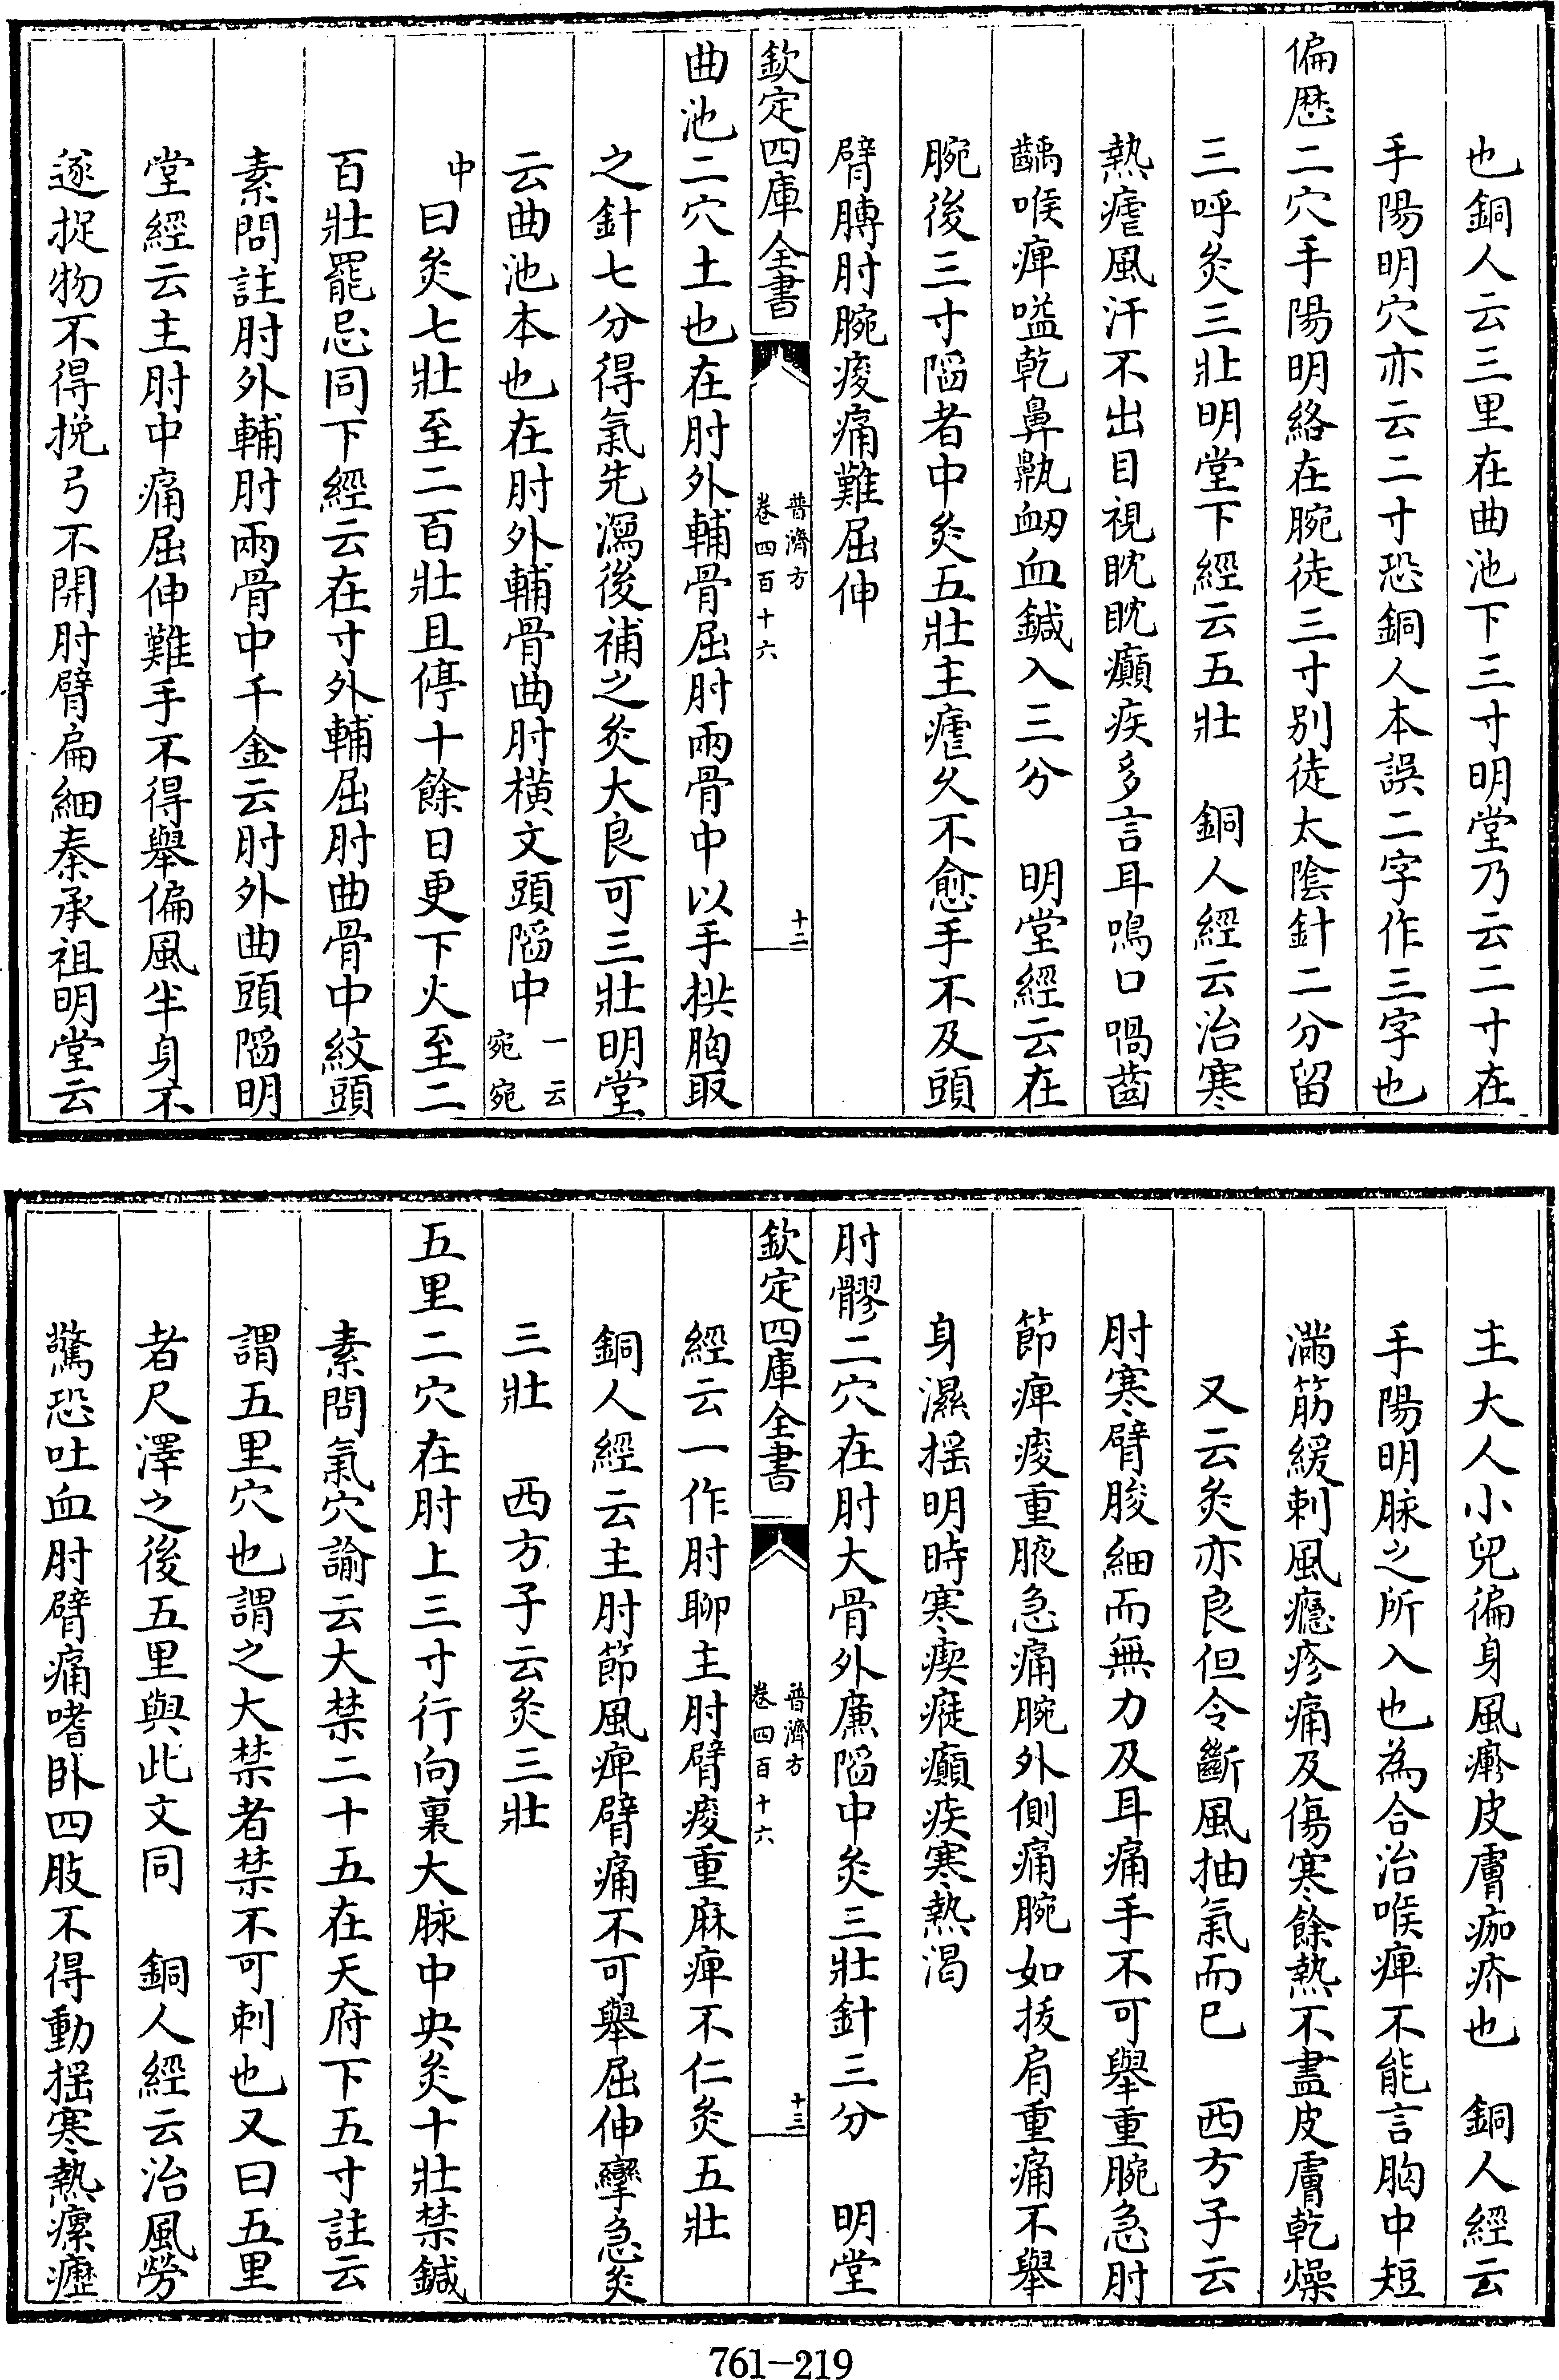 也銅人云三里在曲池下三寸明堂乃云二寸在
手陽明穴亦云二寸恐銅人本誤二字作三字也
偏歴二穴手陽明絡在腕後三寸别徒太隂針二分留
三呼灸三壯明堂下經云五壯　銅人經云治寒
熱瘧風汗不出目視䀮䀮癲疾多言耳鳴口喎齒
齲喉痺嗌乾鼻鼽衂血鍼入三分　明堂經云在
腕後三寸䧟者中灸五壯主瘧久不愈手不及頭
臂膊肘腕痠痛難屈伸
欽定四庫全書
普濟方
卷四百十六
十二
曲池二穴土也在肘外輔骨屈肘兩骨中以手拱胸取
之針七分得氣先瀉後補之灸大良可三壯明堂
云曲池本也在肘外輔骨曲肘橫文頭䧟中一云宛宛
中曰灸七壯至二百壯且停十餘日更下火至二
百壯罷忌同下經云在寸外輔屈肘曲骨中紋頭
素問註肘外輔肘兩骨中千金云肘外曲頭䧟明
堂經云主肘中痛屈伸難手不得舉偏風半身不
遂捉物不得挽弓不開肘臂扁細秦承祖明堂云
主大人小兒徧身風㾦皮膚痂疥也　銅人經云
手陽明脉之所入也為合治喉痺不能言胸中短
滿筋緩刺風癮疹痛及傷寒餘熱不盡皮膚乾燥
又云灸亦良但令斷風抽氣而已　西方子云
肘寒臂朘細而無力及耳痛手不可舉重腕急肘
節痺痠重腋急痛腕外側痛腕如拔肩重痛不舉
身濕揺明時寒瘈瘲癲疾寒熱渴
肘髎二穴在肘大骨外廉䧟中灸三壯針三分　明堂
欽定四庫全書
普濟方
卷四百十六
十三
經云一作肘聊主肘臂痠重麻痺不仁灸五壯
銅人經云主肘節風痺臂痛不可舉屈伸攣急灸
三壯　西方子云灸三壯
五里二穴在肘上三寸行向裏大脉中央灸十壯禁鍼
素問氣穴諭云大禁二十五在天府下五寸註云
謂五里穴也謂之大禁者禁不可刺也又曰五里
者尺澤之後五里與此文同　銅人經云治風勞
驚恐吐血肘臂痛嗜卧四肢不得動揺寒熱瘰癧
761-219